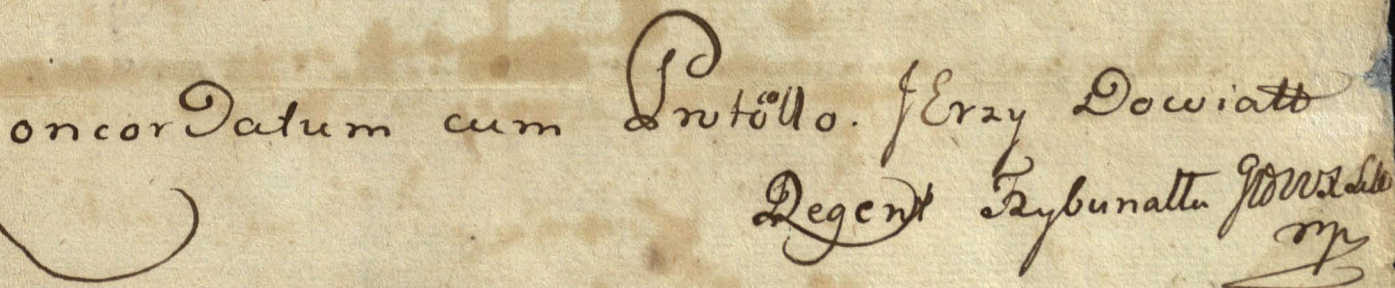 oncorDatum cum Protocollo. JErzy Dowiatt
Regent Trybunattu GłoWXLitt
mp